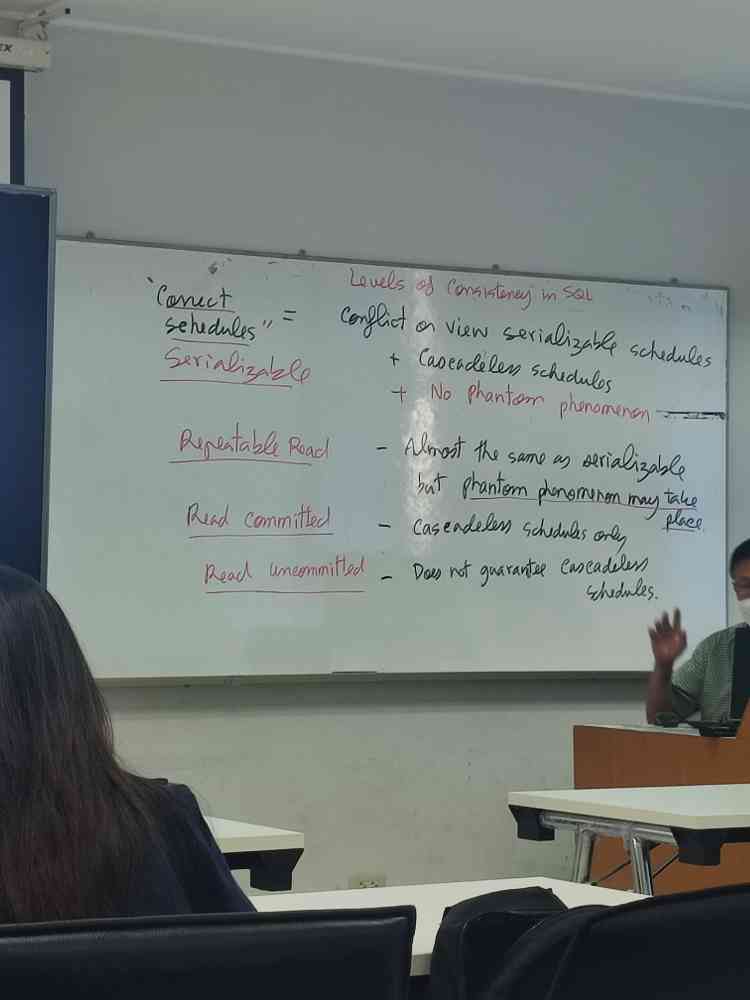 EX
Levels of Consistency in SQL
"Correct schedules" = Conflict or view serializable schedules
Serializable + Cascadeless schedules
+ No phantom phenomenon
Repeatable Read - Almost the same as serializable
but phantom phenomenon may take
place.
Read committed - Cascadeless schedules only
Read uncommitted - Does not guarantee cascadeless
schedules.